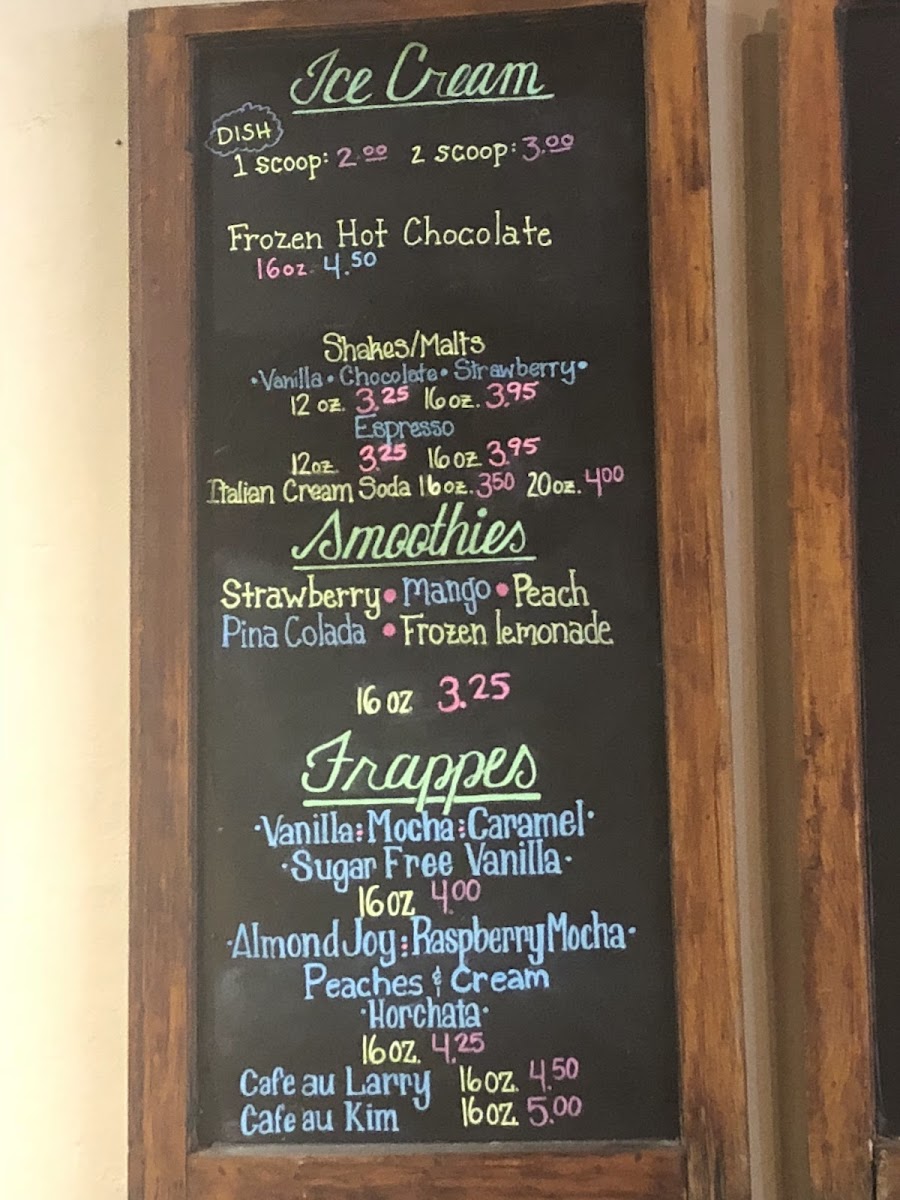 Ice Cream
DISH
1 scoop: 2.00 2 scoop: 3.00
Frozen Hot Chocolate
16oz. 4.50
Shakes/Malts
•Vanilla • Chocolate • Strawberry•
12 oz. 3.25 16oz. 3.95
Espresso
12oz. 3.25 16oz 3.95
Italian Cream Soda 16oz. 350 20oz. 400
Smoothies
Strawberry • Mango • Peach
Pina Colada • Frozen lemonade
16 oz 3.25
Frappes
·Vanilla : Mocha : Caramel·
·Sugar Free Vanilla·
16oz 4.00
·Almond Joy : Raspberry Mocha·
Peaches & Cream
·Horchata·
16oz. 4.25
Cafe au Larry 16oz. 4.50
Cafe au Kim 16oz. 5.00